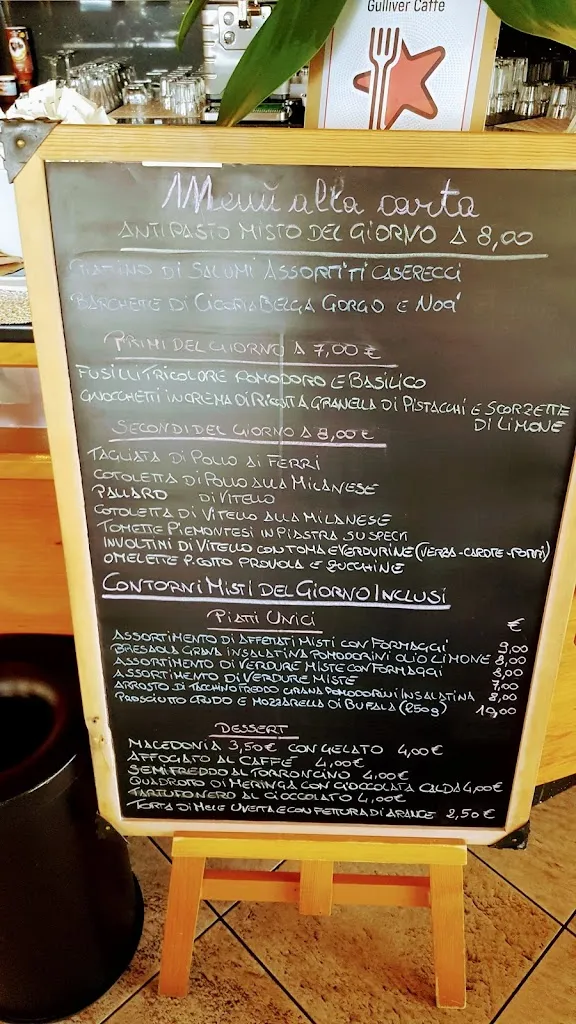 Gulliver Caffè
Menù alla carta
ANTIPASTO MISTO DEL GIORNO A 8,00
DI SALUMI ASSORTITI CASERECCI
BARCHETE DI CICORIA BELGA GORGO E NOCI
PRIMI DEL GIORNO A 7,00 €
FUSILLI TRICOLORE POMODORO E BASILICO
GNOCCHETTI IN CREMA DI RICOTTA GRANELLA DI PISTACCHI E SCORZETTE
DI LIMONE
SECONDI DEL GIORNO A 8,00€
TAGLIATA DI POLLO AI FERRI
COTOLETTA DI POLLO ALLA MILANESE
PAILARD DI VITELLO
COTOLETTA DI VITELLO ALLA MILANESE
TOMETTE PIEMONTESI IN PIASTRA SU SPECK
INVOLTINI DI VITELLO CON TOMA E VERDURINE (VERZA-CAROTE-PORRI)
OMELETTE P.COTTO PROVOLA E ZUCCHINE
CONTORNI MISTI DEL GIORNO INCLUSI
PIATTI UNICI €
ASSORTIMENTO DI AFFETATI MISTI CON FORMAGGI 9,00
BRESAOLA GRANA INSALATINA POMODORINI OLIO LIMONE 8,00
ASSORTIMENTO DI VERDURE MISTE CON FORMAGGI 8,00
ASSORTIMENTO DI VERDURE MISTE 7,00
ARROSTO DI TACCHINO FREDDO GRANA POMODORINI INSALATINA 8,00
PROSCIUTTO CRUDO E MOZZARELLA DI BUFALA (250g) 10,00
DESSERT
MACEDONIA 3,50€ CON GELATO 4,00€
AFFOGATO AL CAFFÈ 4,00€
SEMIFREDDO AL TORRONCINO 4,00€
QUADROTTO DI MERINGA CON CIOCCOLATA CALDA 4,00€
TARTUFO NERO AL CIOCCOLATO 4,00€
TORTA DI MELE UVETTA E CON FETTURA DI ARANCE 2,50€